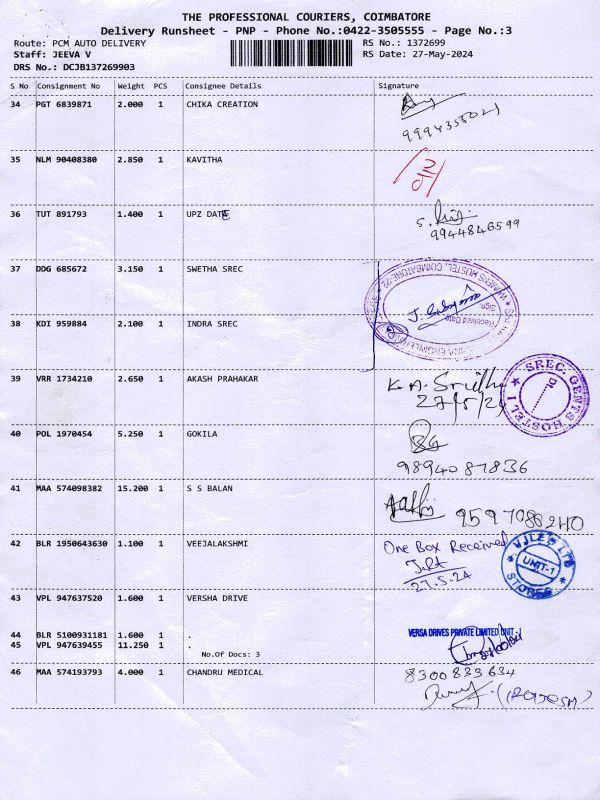 THE PROFESSIONAL COURIERS, COIMBATORE
Delivery Runsheet - PNP - Phone No.:0422-3505555 - Page No.:3
Route: PCM AUTO DELIVERY RS No.: 1372699
Staff: JEEVA V RS Date: 27-May-2024
DRS No.: DCJB137269903
S No Consignment No Weight PCS Consignee Details Signature
34 PGT 6839871 2.000 1 CHIKA CREATION
35 NLM 90408380 2.850 1 KAVITHA
36 TUT 891793 1.400 1 UPZ DATE
9944846599
37 DDG 685672 3.150 1 SWETHA SREC
Received Date
Sign
38 KDI 959884 2.100 1 INDRA SREC
39 VRR 1734210 2.650 1 AKASH PRAHAKAR
27/5/24
SREC. GENTS HOSTEL I
40 POL 1970454 5.250 1 GOKILA
9894087836
41 MAA 574098382 15.200 1 S S BALAN
9597086240
42 BLR 1950643630 1.100 1 VEEJALAKSHMI One Box Received
27.5.24
UNIT-1
STORES
43 VPL 947637520 1.600 1 VERSHA DRIVE
44 BLR 5100931181 1.600 1 . VERSA DRIVES PRIVATE LIMITED UNIT - I
45 VPL 947639455 11.250 1 .
No.Of Docs: 3
46 MAA 574193793 4.000 1 CHANDRU MEDICAL 8300833634